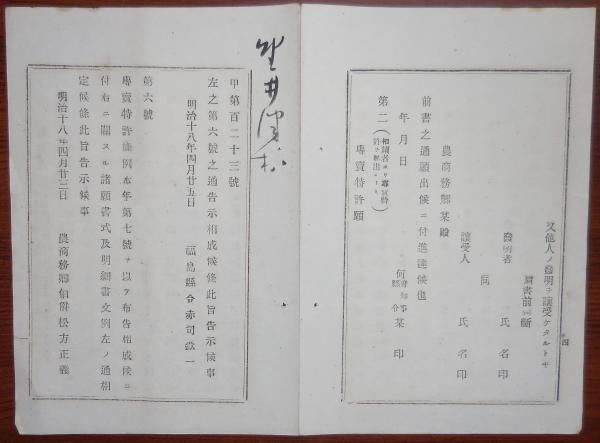 又他人ノ發明ヲ讓受ケタルトキ
肩書前
發明者 氏名印
同
讓受人 氏名印
農商務卿某殿
前書之通願出候ニ付進達候也
年月日
何府知事縣令某印
第二（相續者ヨリ專賣特許ヲ願出ルトキ）
專賣特許願
井
甲第百二十三號
左之第六號之通告示相成候條此旨告示候事
明治十八年四月廿五日
福島縣令赤司欽一
第六號
專賣特許條例本年第七號ヲ以テ布告相成候ニ
付右ニ關スル諸願書式及明細書文例左ノ通相
定候條此旨告示候事
明治十八年四月廿三日 農商務卿伯爵松方正義